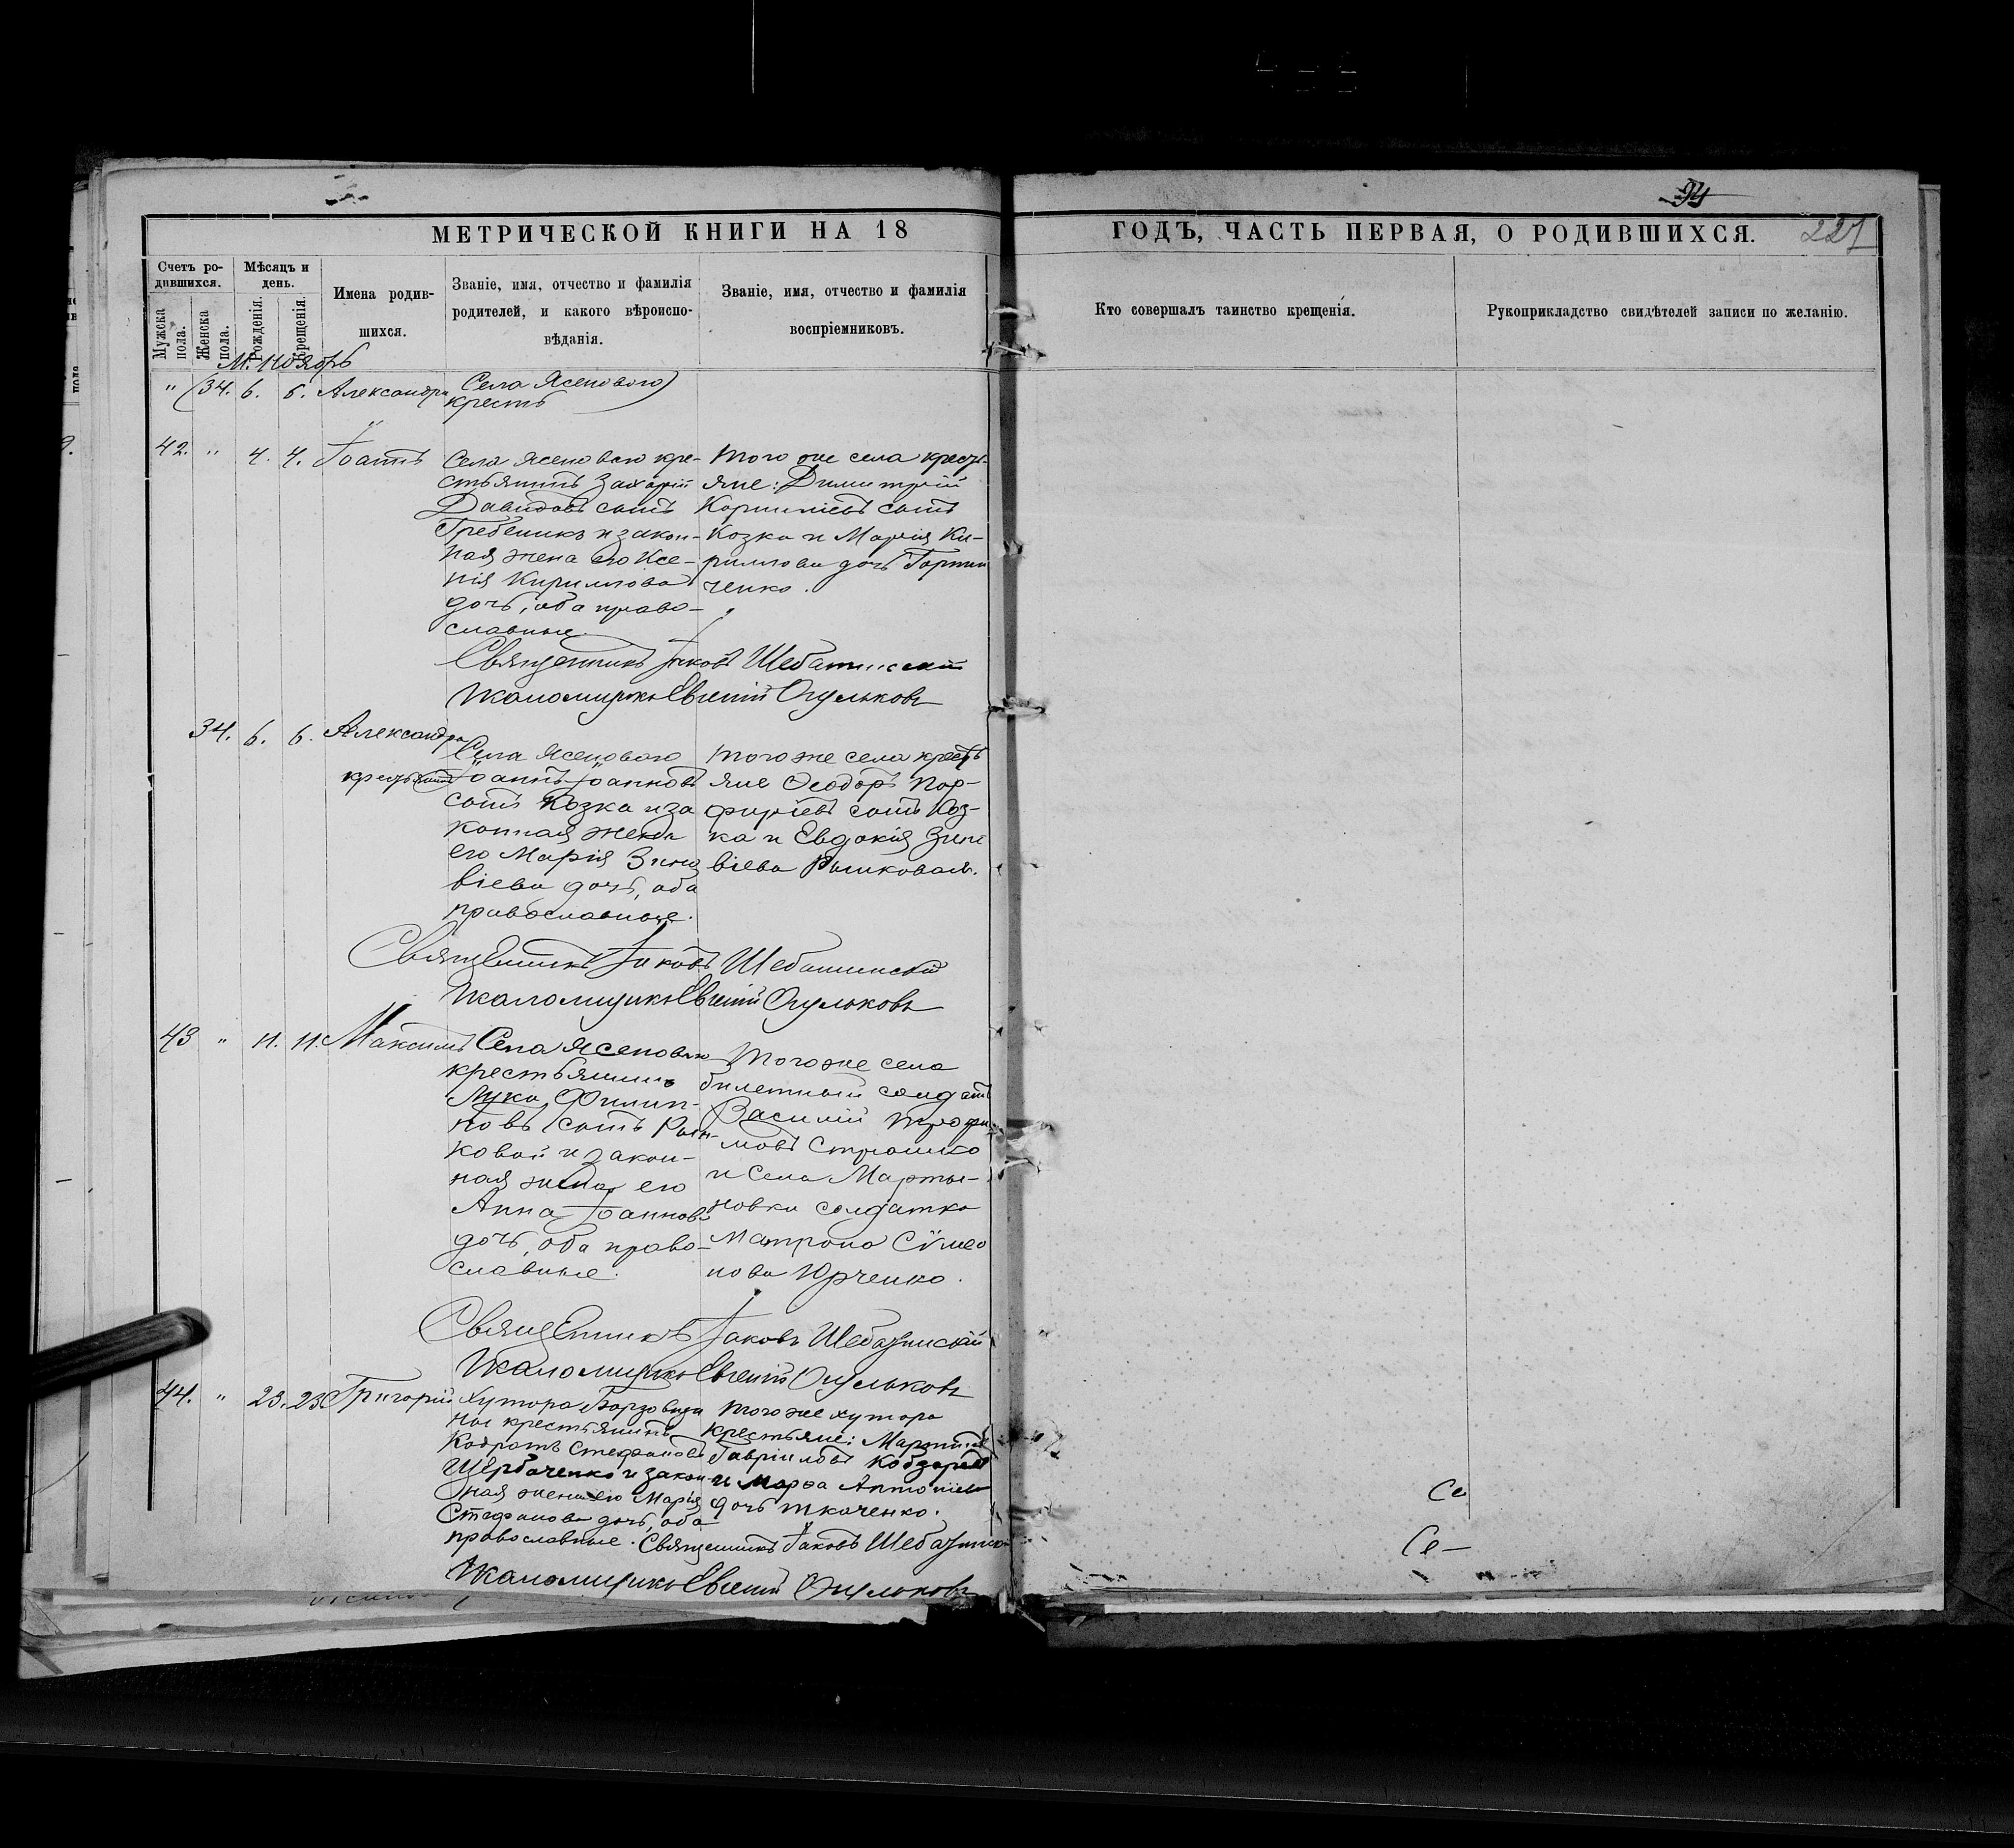 94
МЕТРИЧЕСКОЙ КНИГИ НА 18
ГОДЪ, ЧАСТЬ ПЕРВАЯ, О РОДИВШИХСЯ.
227
Счетъ ро-
дившихся.
Мужеска пола.
Женска пола.
Мѣсяцъ и
день.
Рожденія.
Крещенія.
Имена родив-
шихся.
Званіе, имя, отчество и фамилія
родителей, и какого вѣроиспо-
вѣданія.
Званіе, имя, отчество и фамилія
воспріемниковъ.
Кто совершалъ таинство крещенія.
Рукоприкладство свидѣтелей записи по желанію.
М. Ноябрь
" (34. 6. 6. Александра Села Ясенового)
крестъ
42. " 4. 4. Іоаннъ
Села Ясенового кре-
стьянинъ Захарій
Давидовъ сынъ
Гребеникъ и закон-
ная жена его Ксе-
нія Кириллова
дочь, оба право-
славные.
Того же села кресть-
яне: Димитрій
Корниліевъ сынъ
Козка и Марія Ки-
риллова дочь
ченко.
Священникъ Іаковъ Шебатинскій
Псаломщикъ Евгеній Огульковъ
34. 6. 6. Александра
Села Ясенового
крестьянинъ Іоаннъ Іоанновъ
сынъ Козка и за
конная жена
его Марія Зино
віева дочь, оба
православные.
Того же села кресть
яне Ѳеодоръ Пор-
фиріевъ сынъ Коз-
ка и Евдокія Зино
віева Рынковая.
Священникъ Іаковъ Шебатинскій
Псаломщикъ Евгеній Огульковъ
43 " 11. 11. Максимъ
Села Ясенового
крестьянинъ
Лука Филип-
повъ сынъ Рын-
ковой и закон-
ная жена его
Анна Іоаннова
дочь, оба право-
славные.
Того же села
билетный солдатъ
Василій Трофи-
мовъ
и села Марты-
новки солдатка
Матрона Сѵмео
нова Юрченко.
Священникъ Іаковъ Шебатинскій
Псаломщикъ Евгеній Огульковъ
44. " 23. 23 Григорій
Хутора
ны крестьянинъ
Кодратъ Стефановъ
Щербаченко и закон-
ная жена его Марія
Стефанова дочь, оба
православные.
Того же хутора
крестьяне: Мартинъ
Гавріиловъ Кобзарев
и Марѳа Антоніева
дочь Ткаченко.
Священникъ Іаковъ Шебатинскій
Псаломщикъ Евгеній Огульковъ
Се
Се—